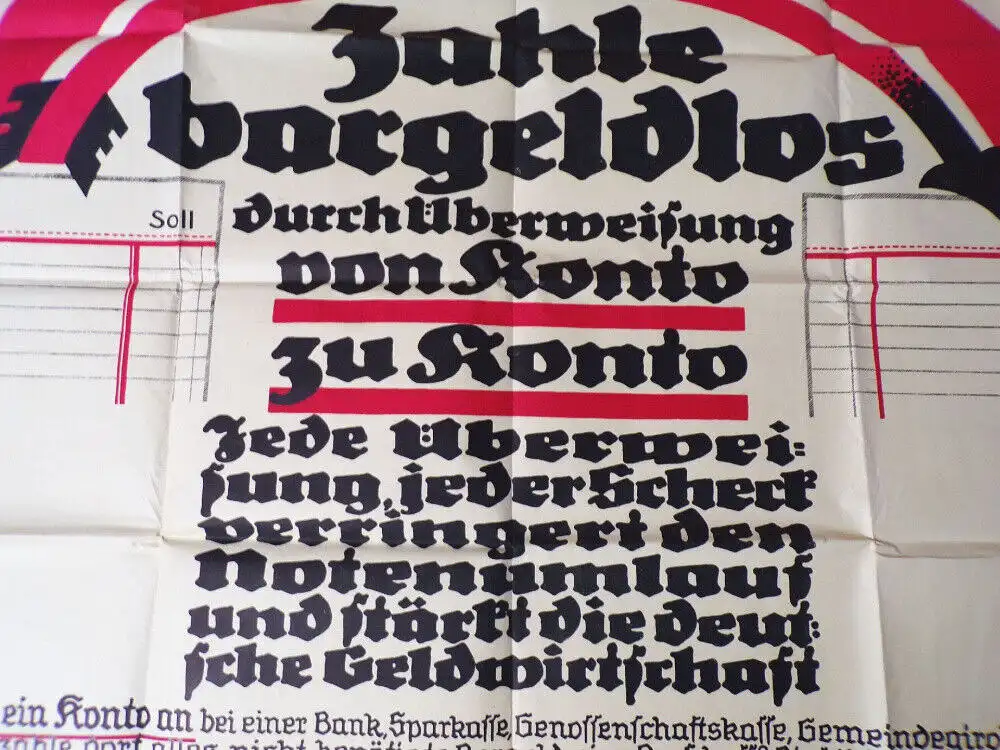 Zahle
bargeldlos
Soll
durch Überweiſung
von Konto
zu Konto
Jede Überwei⸗
ſung, jeder Scheck
verringert den
Notenumlauf
und ſtärkt die deut⸗
ſche Geldwirtſchaft
ein Konto an bei einer Bank, Sparkaſſe, Genoſſenſchaftskaſſe, Gemeindegiro
zahle dort alles nicht benötigte